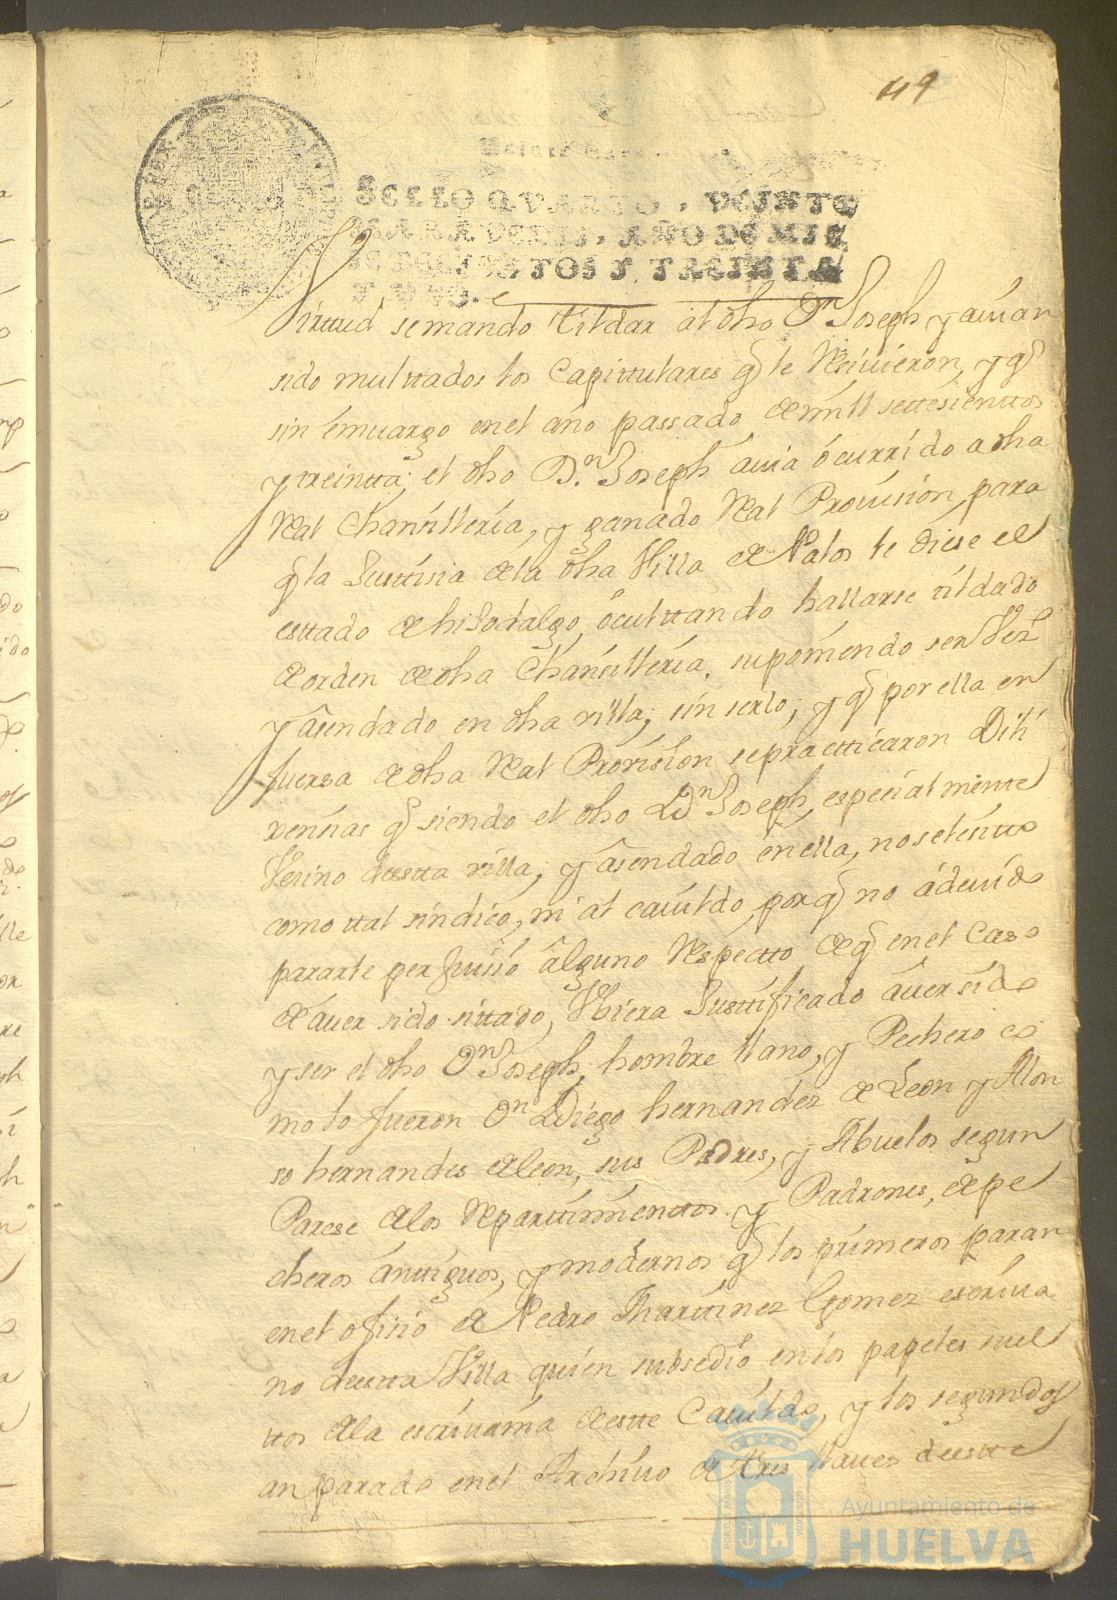 49
SELLO QVARTO, VEINTE
MARAVEDIS, AÑO DE MIL
SETECIENTOS Y TREINTA
Y VNO.
Virttud se mando tildar al dho Dn Joseph y avian
sido multtados los Capittulares q le Reciuieron, y q
sin emuargo en el año passado de mill settesienttos
y treintta, el dho Dn. Joseph auia ocurrido a dha
Real Chansilleria, y ganado Real Prouision para
q la Justtisia de la dha Villa de Palos le diese el
esttado de hijodalgo, oculttando hallarse tildado
de orden de dha Chansilleria, suponiendo ser Vezo
y asendado en dha villa, sin serlo; y q por ella en
fuersa de dha Real Provision se practticaron Dili
xensias q siendo el dho Dn Joseph, especialmente
Vesino de estta villa, y asendado en ella, no se sitto
como ttal sindico, ni al cauildo, por q no a deuido
pararle perjuisio alguno Respectto de q en el Caso
de auer sido sittado, Vbiera Justtificado auer sido
y ser el dho Dn Joseph, hombre llano, y Pechero co
mo lo fueron Dn Diego hernandez de Leon y Alon
so hernandes de leon, sus Padres, y Abuelos segun
Parese de los Reparttimienttos y Padrones, de pe
cheros anttiguos, y modernos q los primeros paran
en el ofisio de Pedro Marttinez Gomez escriua
no de estta Villa quien subsedio en los papeles suel
ttos de la escriuania de estte Cauildo, y los segundos
an parado en el Archiuo de tres llaues de estte
Ayuntamiento de
HUELVA